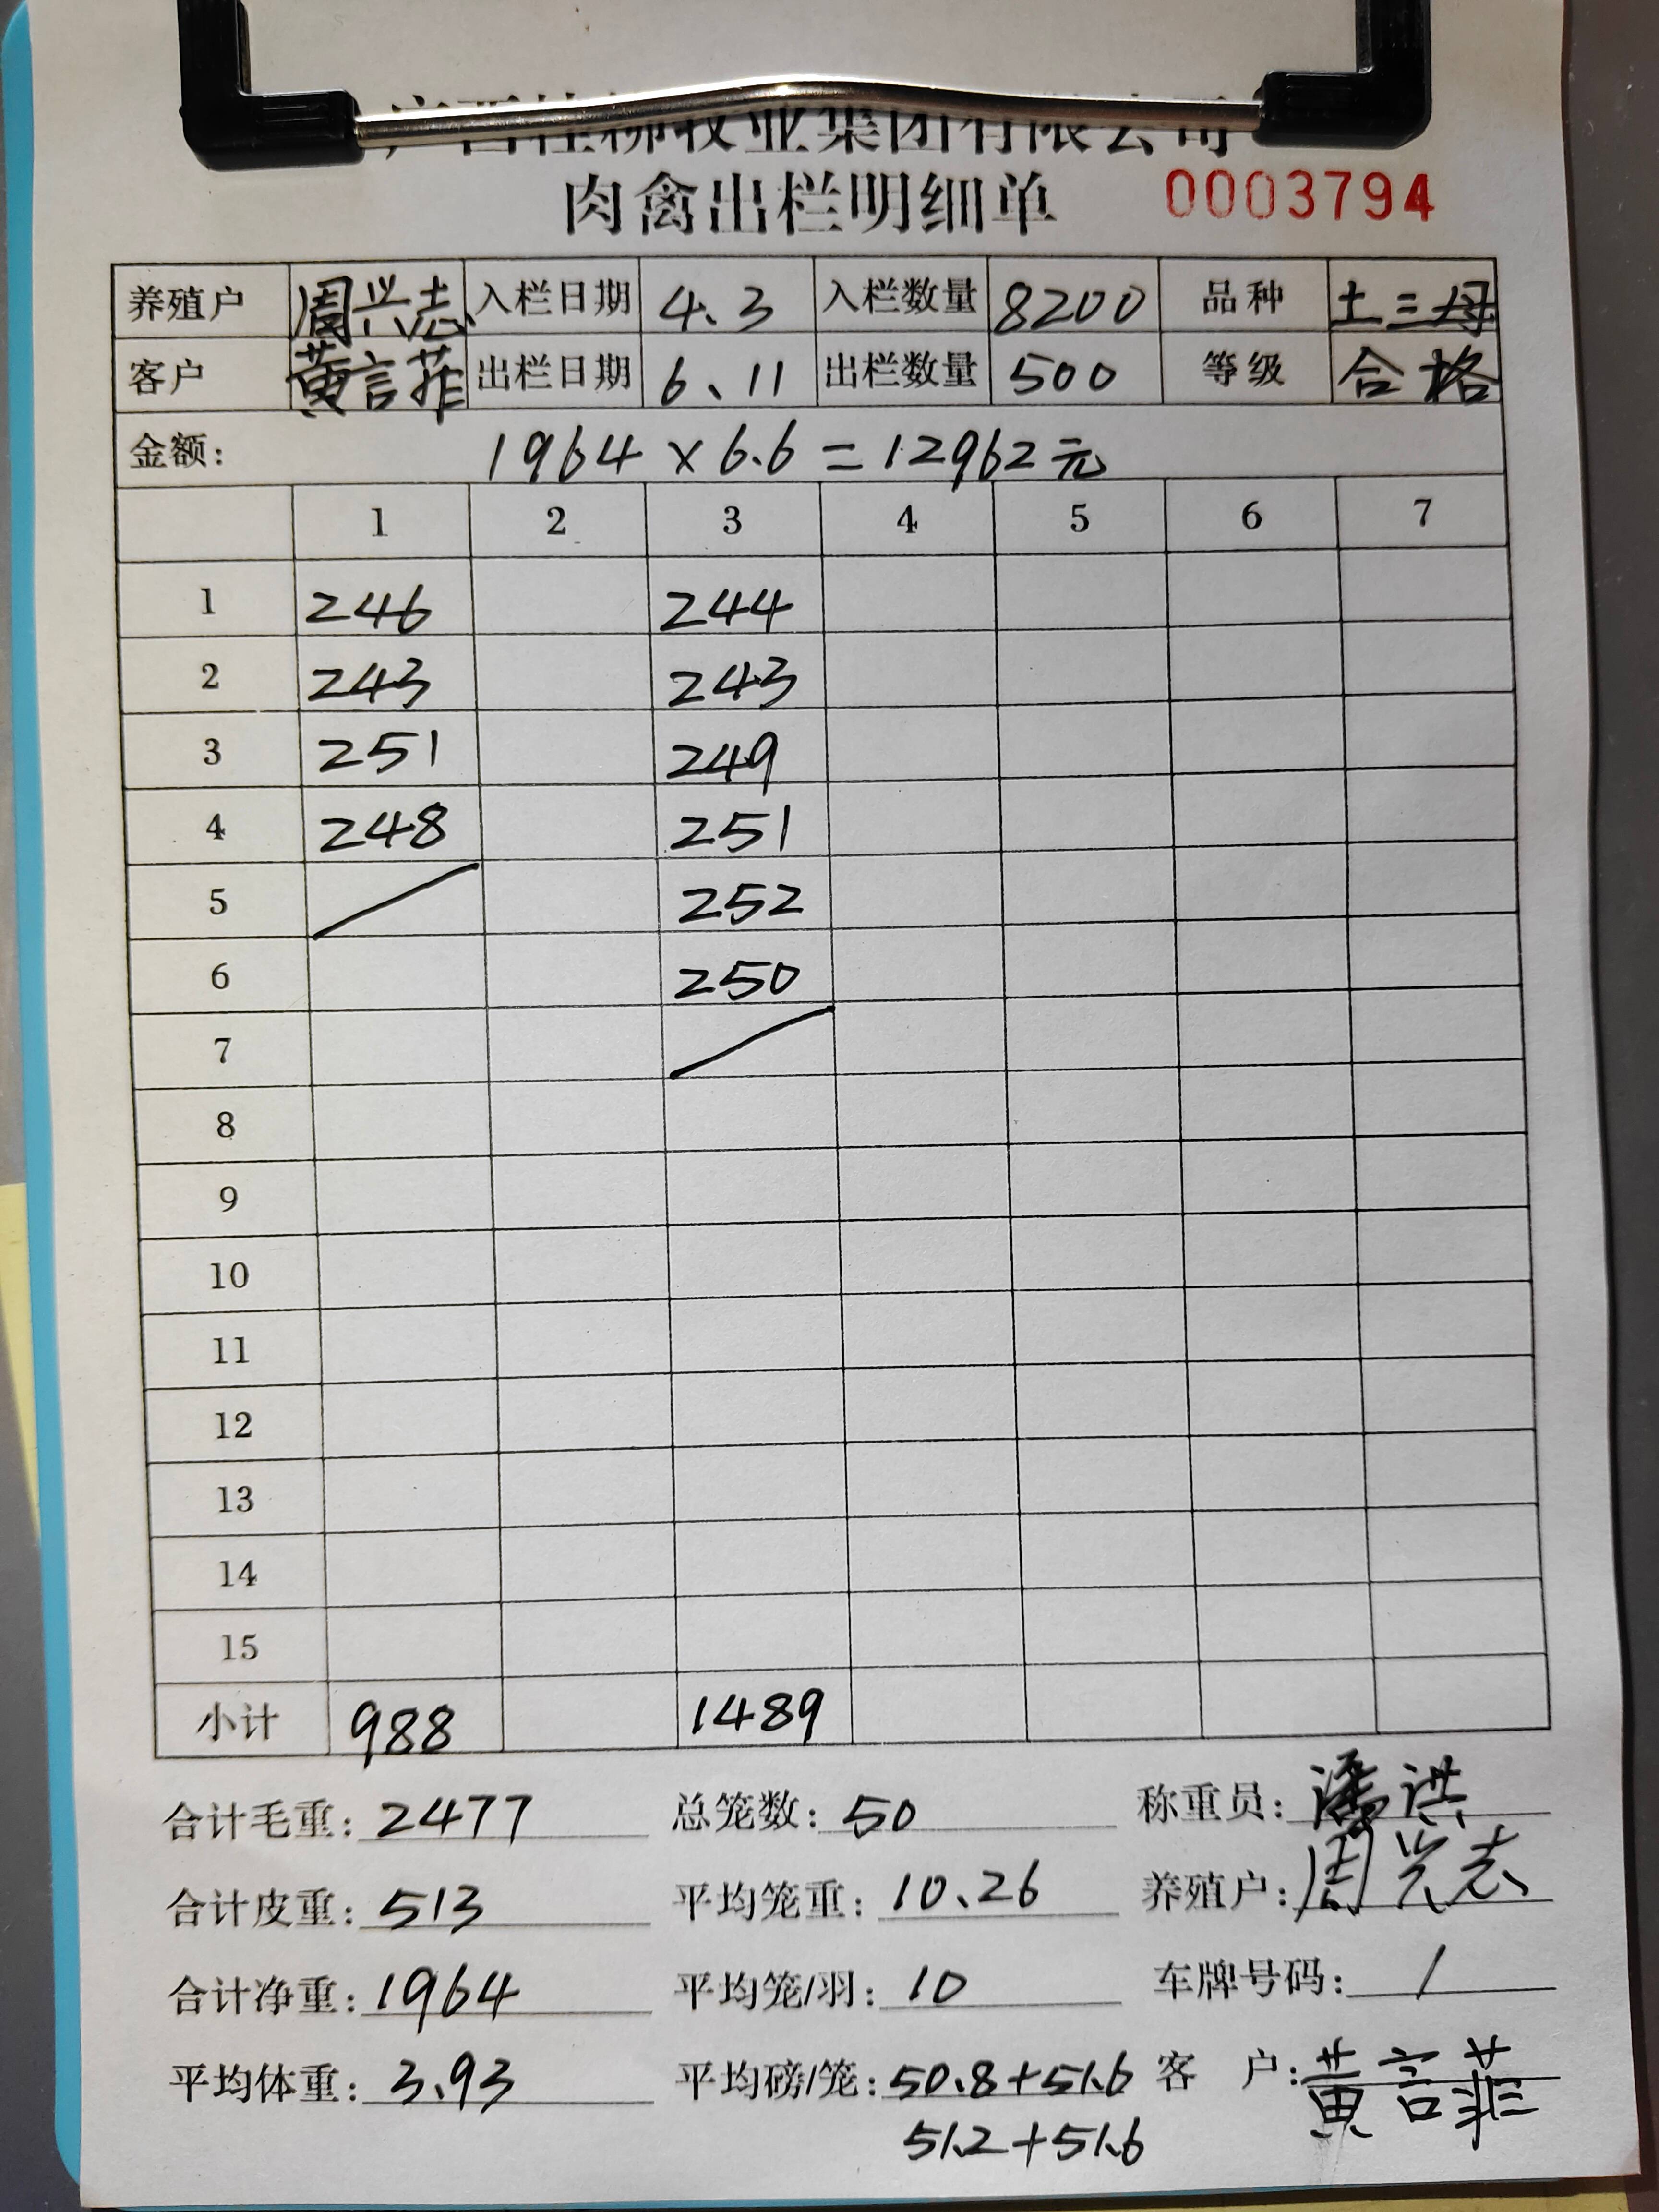 广西桂柳牧业集团有限公司
肉禽出栏明细单 0003794
养殖户 周兴志 入栏日期 4.3 入栏数量 8200 品种 土三母
客户 黄言菲 出栏日期 6.11 出栏数量 500 等级 合格
金额: 1964×6.6=12962元
1 2 3 4 5 6 7
1 246 244
2 243 243
3 251 249
4 248 251
5 252
6 250
7
8
9
10
11
12
13
14
15
小计 988 1489
合计毛重: 2477 总笼数: 50 称重员: 潘洪
合计皮重: 513 平均笼重: 10.26 养殖户: 周兴志
合计净重: 1964 平均笼/羽: 10 车牌号码: /
平均体重: 3.93 平均磅/笼: 50.8+51.6 客 户: 黄言菲
51.2+51.6